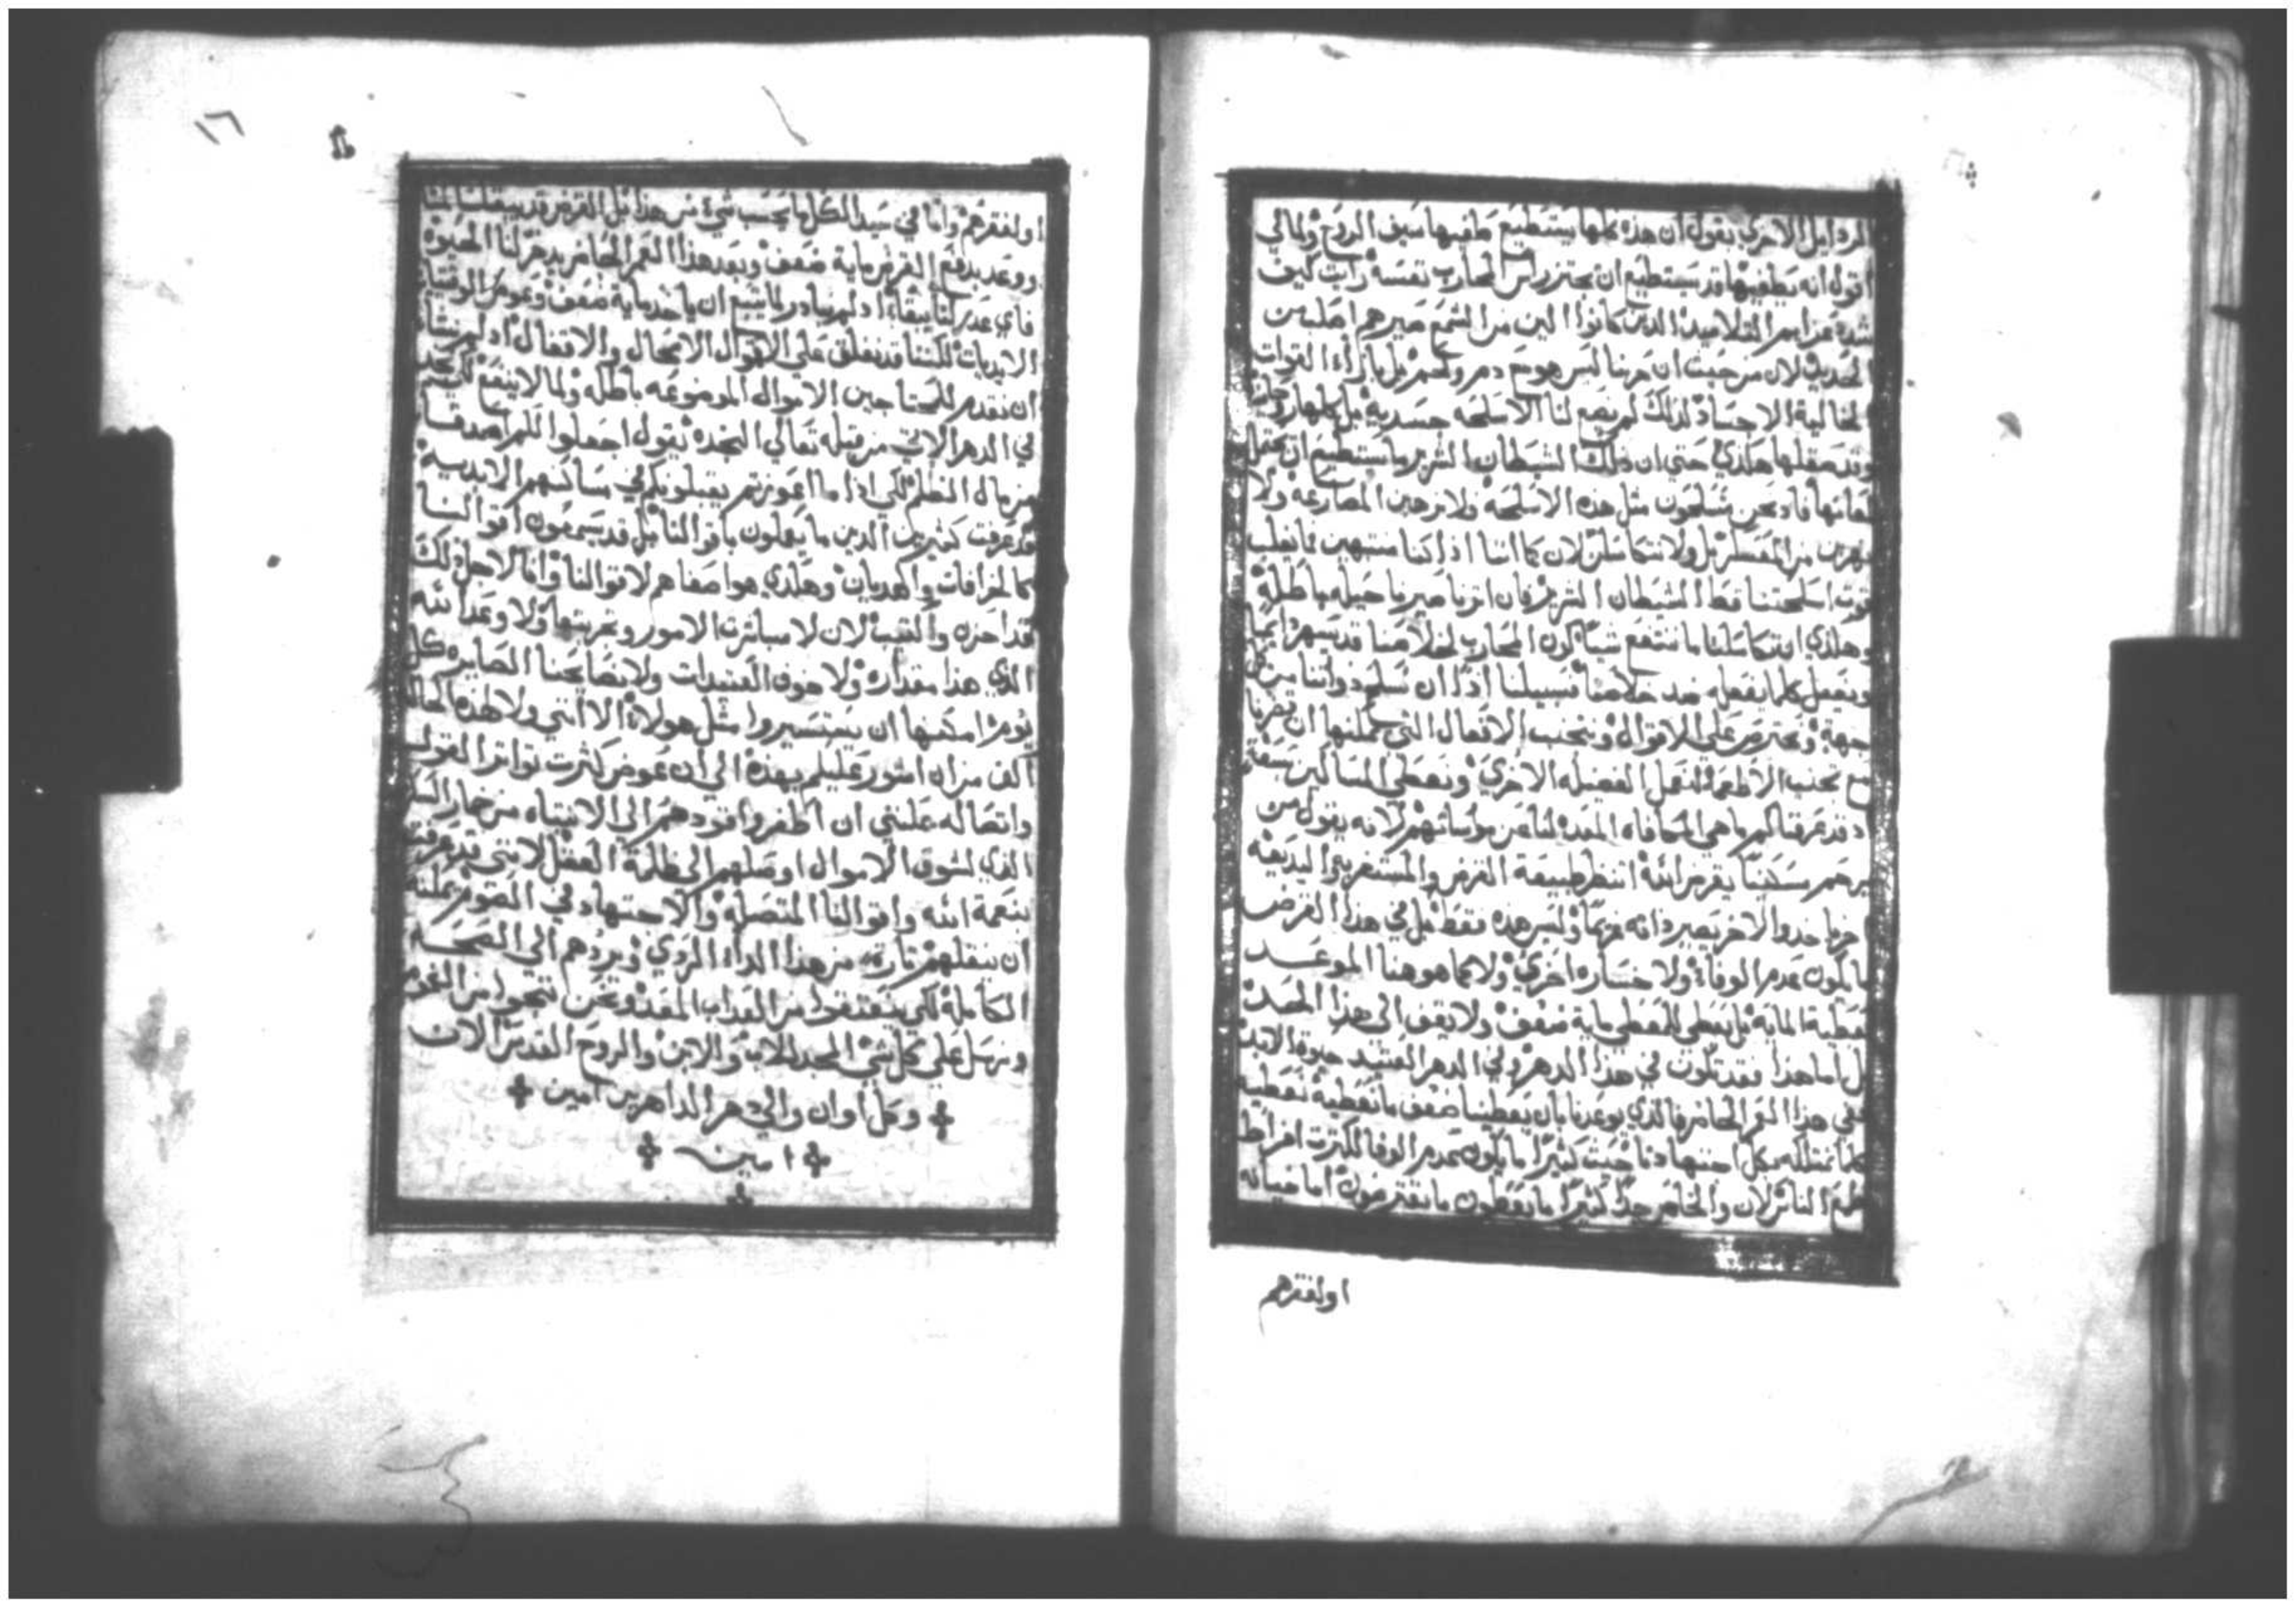 الرذايل الاخري يقول ان هذه كلها يستطيع طفيها سيف الروح ولماني
اقول انه يطفيها قد يستطيع ان يحتز راس المحارب نفسه رايت كيف
شدد عزايم التلاميد الدين كانوا الين من الشمع صيرهم اصلب من
الحديد لان من حيث ان حربنا ليس هو مع دم ولحم بل بازاء القوات
الخالية الاجساد لدلك لم يصع لنا الاسلحه جسدية بل كلها روحانيه
وقد صقلها هكدي حتي ان دلك الشيطان الشرير ما يستطيع ان يحتمل
لمعانها فاد نحن متسلحون مثل هده الاسلحة ولا نرهبن المصارعة ولا
نهربن من المعسكر بل ولا نتكاسلن لان كما اننا ادا كنا منتبهين فما يغلب
قوت اسلحتنا قط الشيطان الشرير فان اثرنا صيرنا حيله باطلة
وهكدي ان تكاسلنا ما ننتفع شيا كون المحارب لخلاصنا قد يسهر دايما
ويفعل كلما يفعله ضد خلاصنا فسبيلنا ادا ان نسلح دواتنا من كل
جهة ونحترص علي الاقوال ونتجنب الافعال التي يمكنها ان تضرنا
مع تجنب الاطعمة لنعمل الفضيله الاخري ونعطي المساكين بسعة
اد قد عرفنا لم ما هي المكافاه المعده لنا عن مواساتهم لانه يقول من
يرحم مسكينا يقرض الله انظر طبيعة القرض والمستغرب البديعة
اخر ياخد والاخر يصير داته غريما وليس هده فقط بل في هذا القرض
ما يكون عدم الوفاء ولا خساره اخري ولا كما هو هنا الموعد
بعطية الماية بل يعطي المعطي ماية ضعف ولا يقف الي هذا الحد
بل اما هذا فقد تكون في هذا الدهر وفي الدهر العتيد حيوة الابد
ففي هذا العمر الحاضر فالذي يوعدنا بان يعطينا ضعف ما نعطيه نعطيه
كلما نمتلكه بكل اجتهادنا حيث كثيرا ما يكون عدم الوفا لكثرت افراط
طمع الناس لان والحاضر جدا كثيرا ما يعطون ما يقترضون اما خيانه
اولفقرهم
١٦
اولفقرهم واما في سيد الكل ما يحسب شي من هذا بل القرض قد يبقا سالما
ووعد بدفع القرض ماية ضعف وبعد هذا العمر الحاضر يدخر لنا الحيوة
فاي عدر لنا يبقاء اد لم نبادر لما يتبع ان ياخد ماية ضعف وعوض الوقتيات
الابديات لكننا قد نغلق علي الاموال الابحال والاقفال اد لم نشا
ان نقدم للمحتاجين الاموال الموضوعه باطله ولما لا ينفع لكي نجد
في الدهر الاتي من قبله تعالي النجده يقول اجعلوا لكم اصدقا
من مال الظلم لكي ادا ما اعوزتم يقبلونكم في مساكنهم الابدية
قد عرفت كثيرين الدين ما يعملون باقوالنا بل قد يسمعون اقوالنا
كالخرافات والهديان وهكدي هو اصغاهم لاقوالنا وانا لاجل دلك
قد احزن واكتيب لان لا مباشرت الامور وتجربتها ولا وعد الله
الذي هذا مقداره ولا خوف العتيدات ولا نصايحنا الصايره كل
يوم امكنها ان يستسيروا مثل هولاء الا انني ولا لهده الحاله
اكف من ان اشور عليكم بهذه الي ان عوض كثرت تواتر القول
واتصاله علني ان اظفر واقودهم الي الانتباه من خمار السكر
الذي لشوق الاموال اوصلهم الي ظلمة العقل لانني قد عرفت
بنعمة الله واقوالنا المتصلة والاجتهاد في الصوم يمكنه
ان ينقلهم تارة من هذا الداء الردي ويردهم الي الصحة
الكاملة لكي ينعتقوا من العداب المعد ونحن ننجوا من الغم
ونرسل علي كل شي المجد للاب والابن والروح القدس الان
وكل اوان والي دهر الداهرين امين
امين